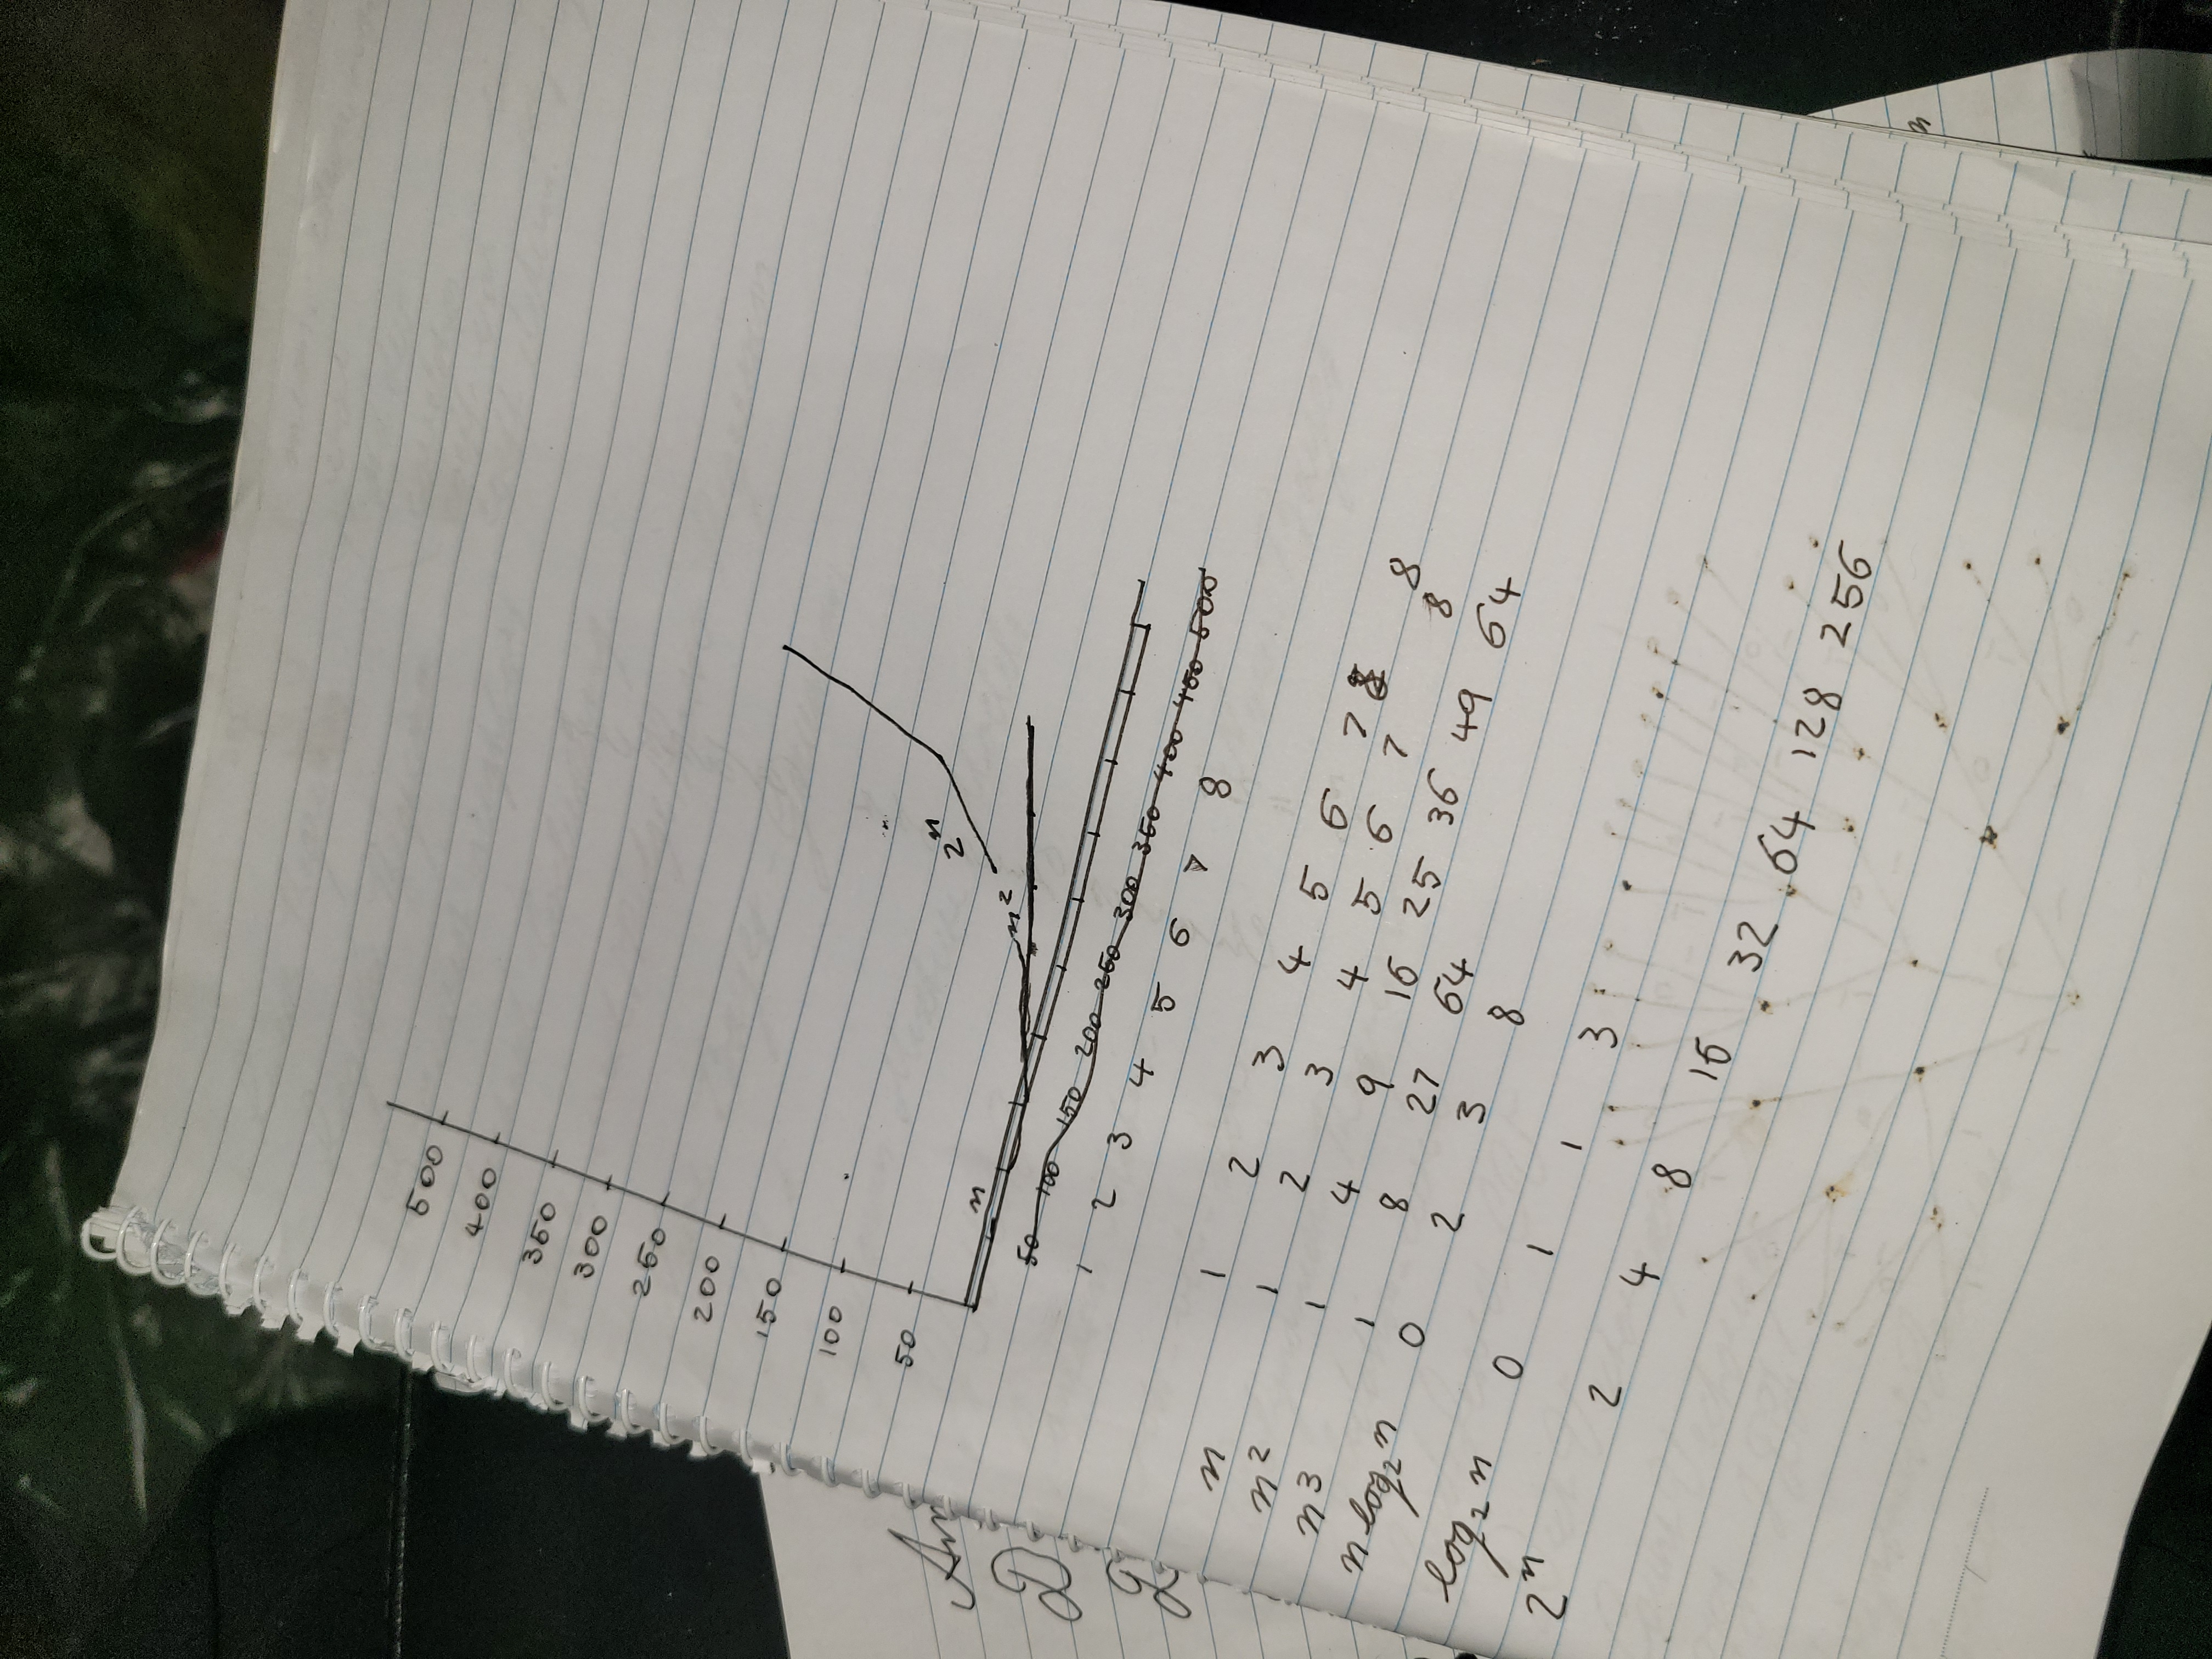 500
400
350
300
250
200
150
100
50
2ⁿ
n
n²
50 100 150 200 250 300 350 400 450 500
1 2 3 4 5 6 7 8
1 2 3 4 5 6 7 8
n 1 2 3 4 5 6 7 8
n² 1 4 9 16 25 36 49 64
n3 1 8 27 64
n log₂ n 0 2 3 8
log₂ n 0 1 1 3
2ⁿ 2 4 8 16 32 64 128 256